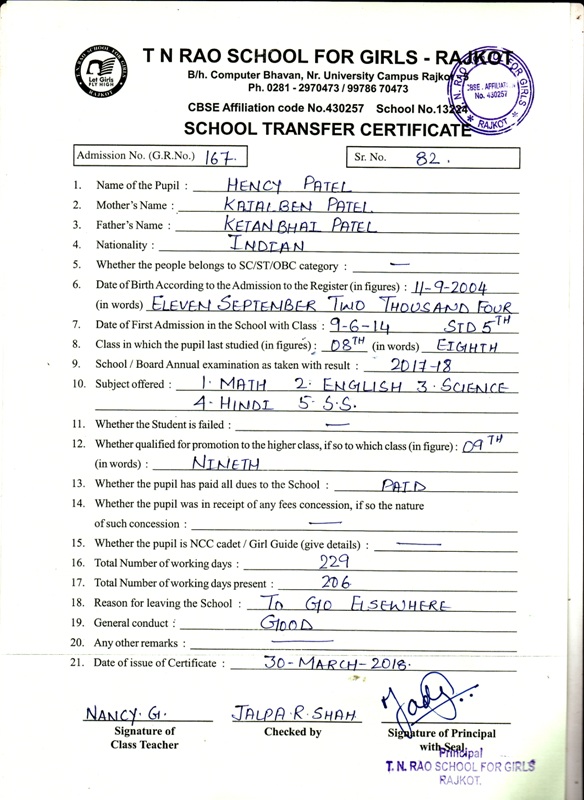 T. N. RAO SCHOOL FOR GIRLS
Let Girls
FLY HIGH
RAJKOT
T N RAO SCHOOL FOR GIRLS - RAJKOT
B/h. Computer Bhavan, Nr. University Campus Rajkot
Ph. 0281 - 2970473 / 99786 70473
CBSE Affiliation code No.430257 School No.13224
T. N. RAO SCHOOL FOR GIRLS
CBSE. AFFILIAT
No. 430257
RAJKOT
SCHOOL TRANSFER CERTIFICATE
Admission No. (G.R.No.) 167. Sr. No. 82.
1. Name of the Pupil : HENCY PATEL
2. Mother's Name : KAJALBEN PATEL
3. Father's Name : KETANBHAI PATEL
4. Nationality : INDIAN
5. Whether the people belongs to SC/ST/OBC category : —
6. Date of Birth According to the Admission to the Register (in figures) : 11-9-2004
(in words) ELEVEN SEPTEMBER TWO THOUSAND FOUR
7. Date of First Admission in the School with Class : 9-6-14 STD 5TH
8. Class in which the pupil last studied (in figures) : 08TH (in words) EIGHTH
9. School / Board Annual examination as taken with result : 2017-18
10. Subject offered : 1. MATH 2. ENGLISH 3. SCIENCE
4. HINDI 5. S.S.
11. Whether the Student is failed : —
12. Whether qualified for promotion to the higher class, if so to which class (in figure) : 09TH
(in words) : NINETH
13. Whether the pupil has paid all dues to the School : PAID
14. Whether the pupil was in receipt of any fees concession, if so the nature
of such concession : —
15. Whether the pupil is NCC cadet / Girl Guide (give details) : —
16. Total Number of working days : 229
17. Total Number of working days present : 206
18. Reason for leaving the School : TO GO ELSEWHERE
19. General conduct : GOOD
20. Any other remarks : —
21. Date of issue of Certificate : 30-MARCH-2018.
NANCY. G. JALPA. R. SHAH
Signature of Checked by Signature of Principal
Class Teacher with Seal
Principal
T. N. RAO SCHOOL FOR GIRLS
RAJKOT.